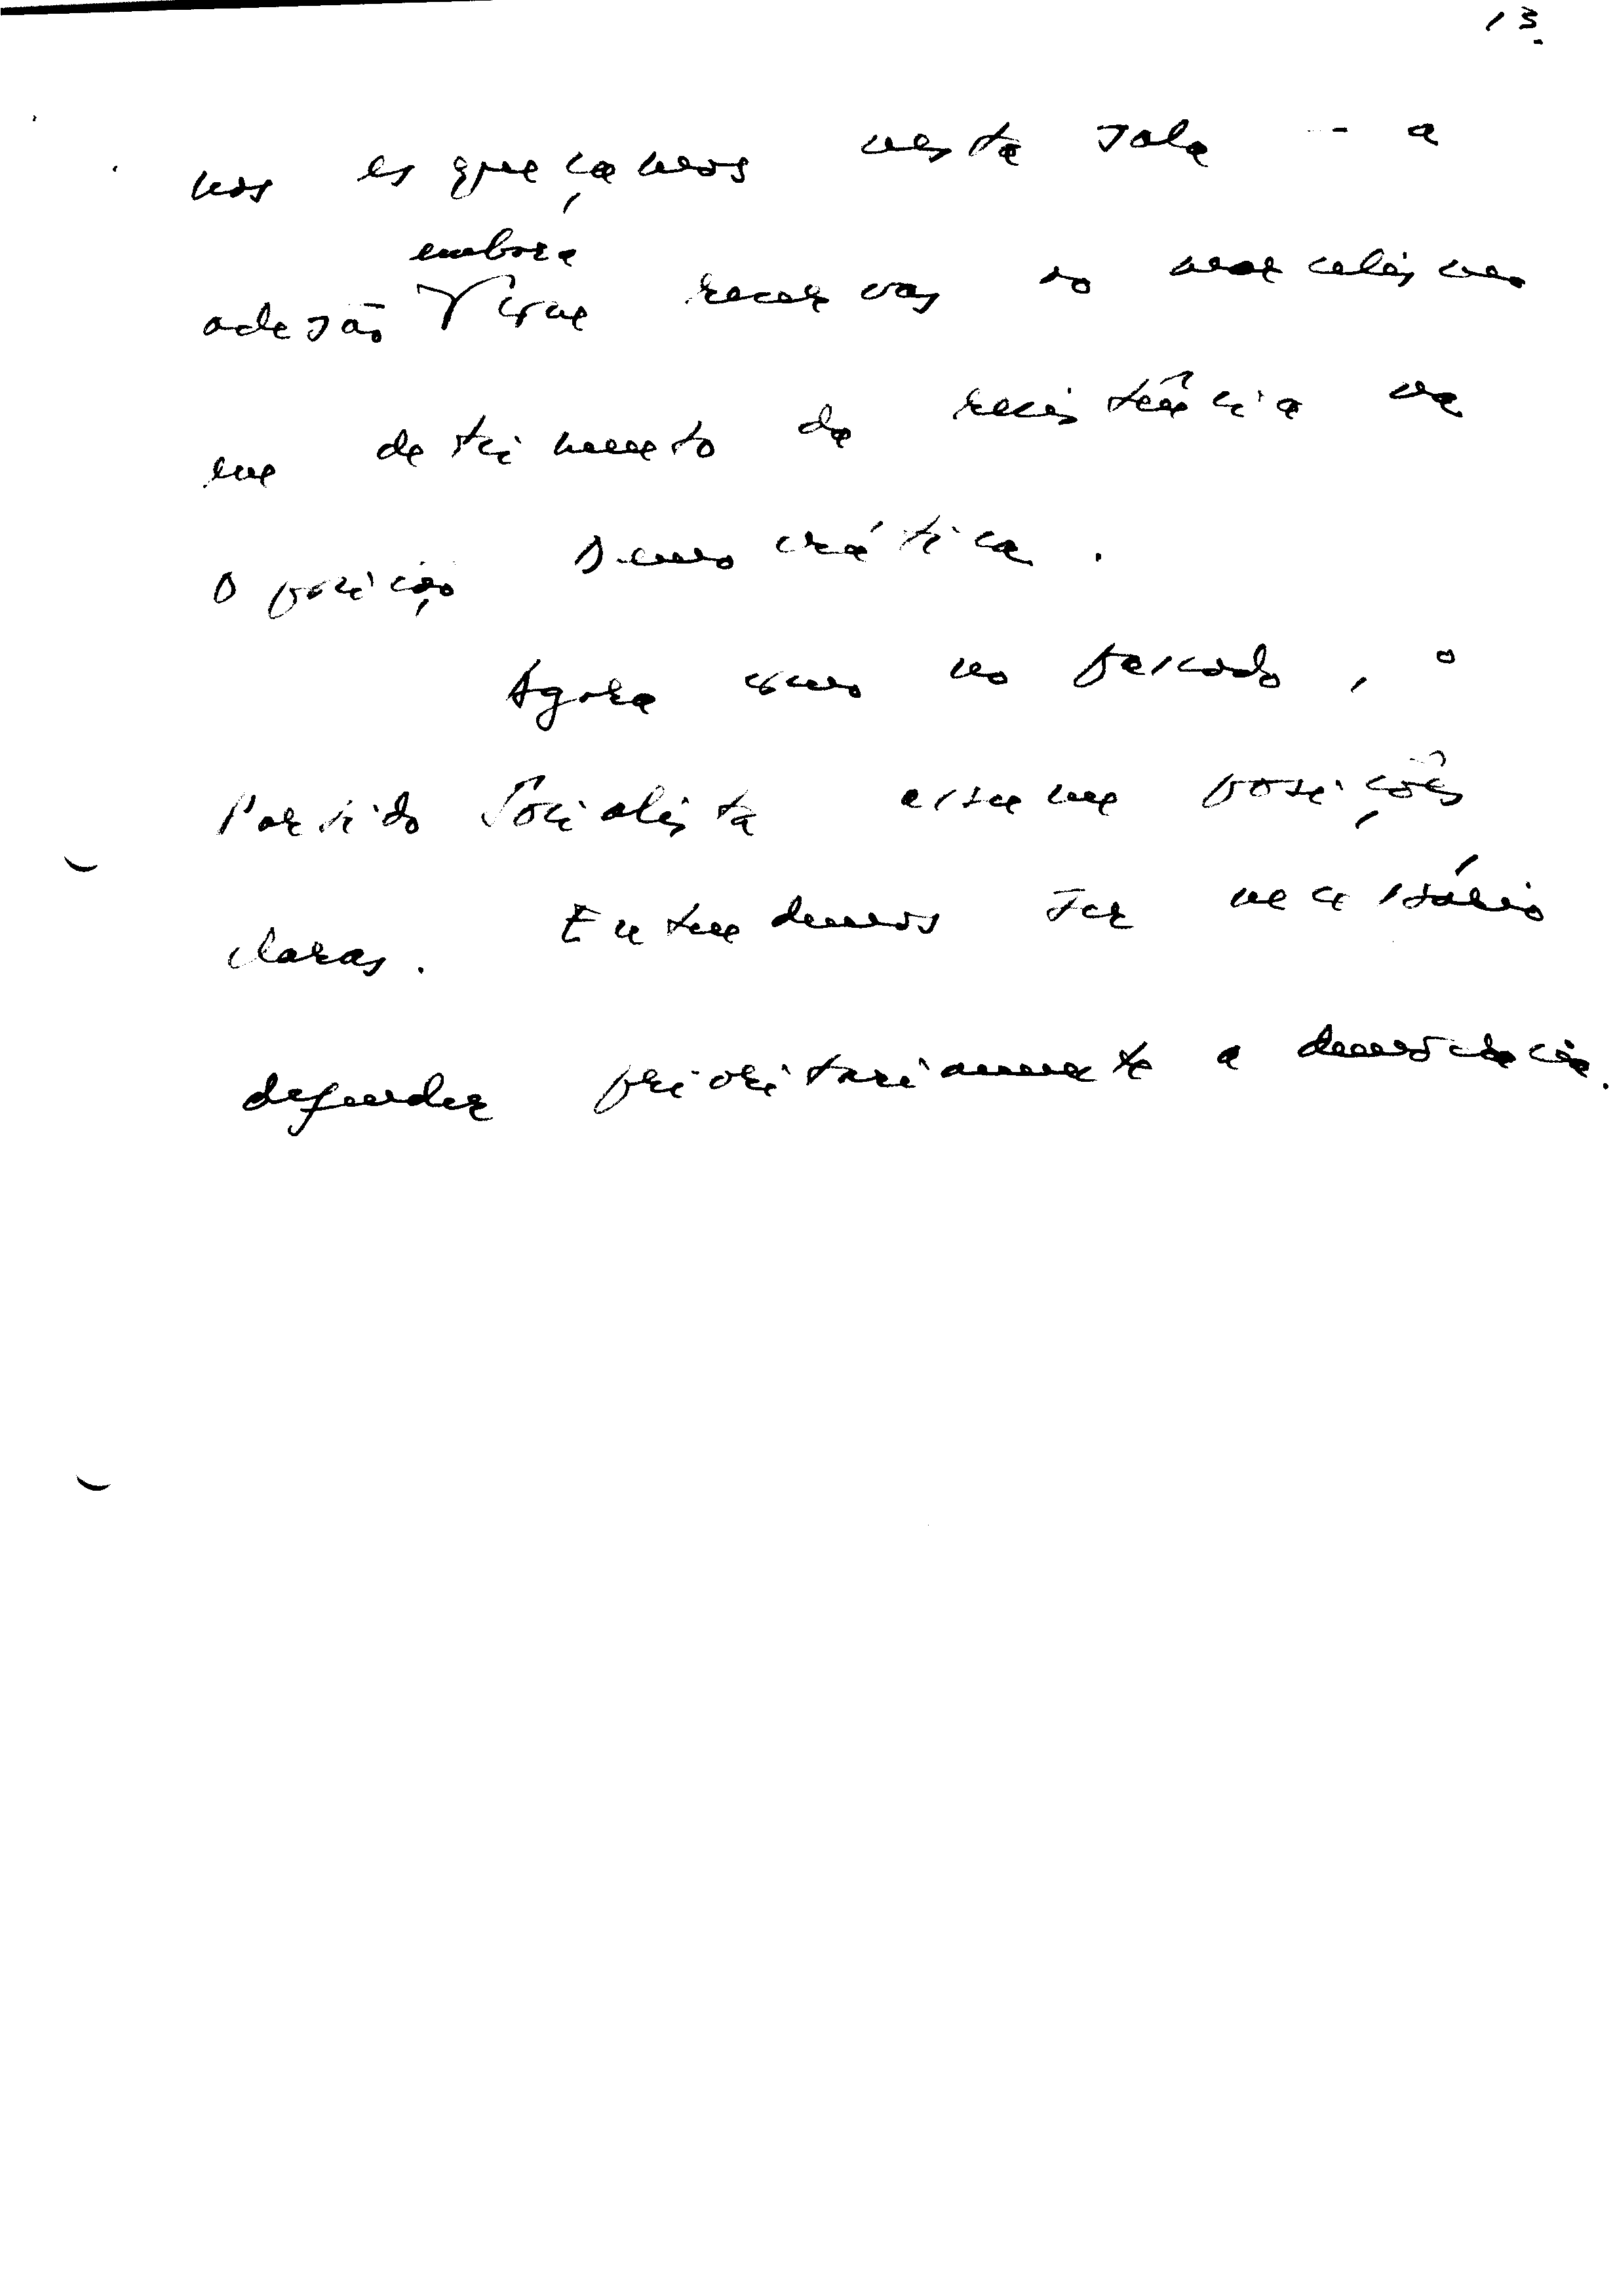 13.
nos esqueçamos nesta sala -- a
embora
adesão com reservas ao marcelismo
em detrimento da resistência na
Oposição Democrática.
Agora como no passado, o
Partido Socialista assume posições
claras. Entendemos ser necessário
defender prioritariamente a democracia.